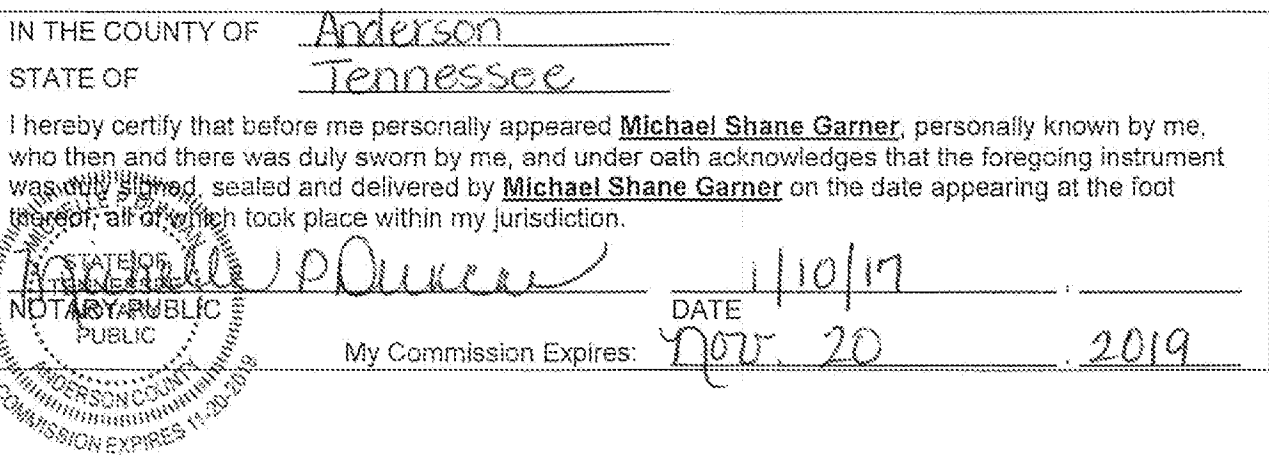 IN THE COUNTY OF Anderson
STATE OF Tennessee
I hereby certify that before me personally appeared Michael Shane Garner, personally known by me,
who then and there was duly sworn by me, and under oath acknowledges that the foregoing instrument
was duly signed, sealed and delivered by Michael Shane Garner on the date appearing at the foot
thereof, all of which took place within my jurisdiction.
P Duncan 1/10/17
NOTARY PUBLIC DATE
My Commission Expires: Nov. 20, 2019
STATE OF
TENNESSEE
NOTARY
PUBLIC
ANDERSON COUNTY
COMMISSION EXPIRES 11-20-2019